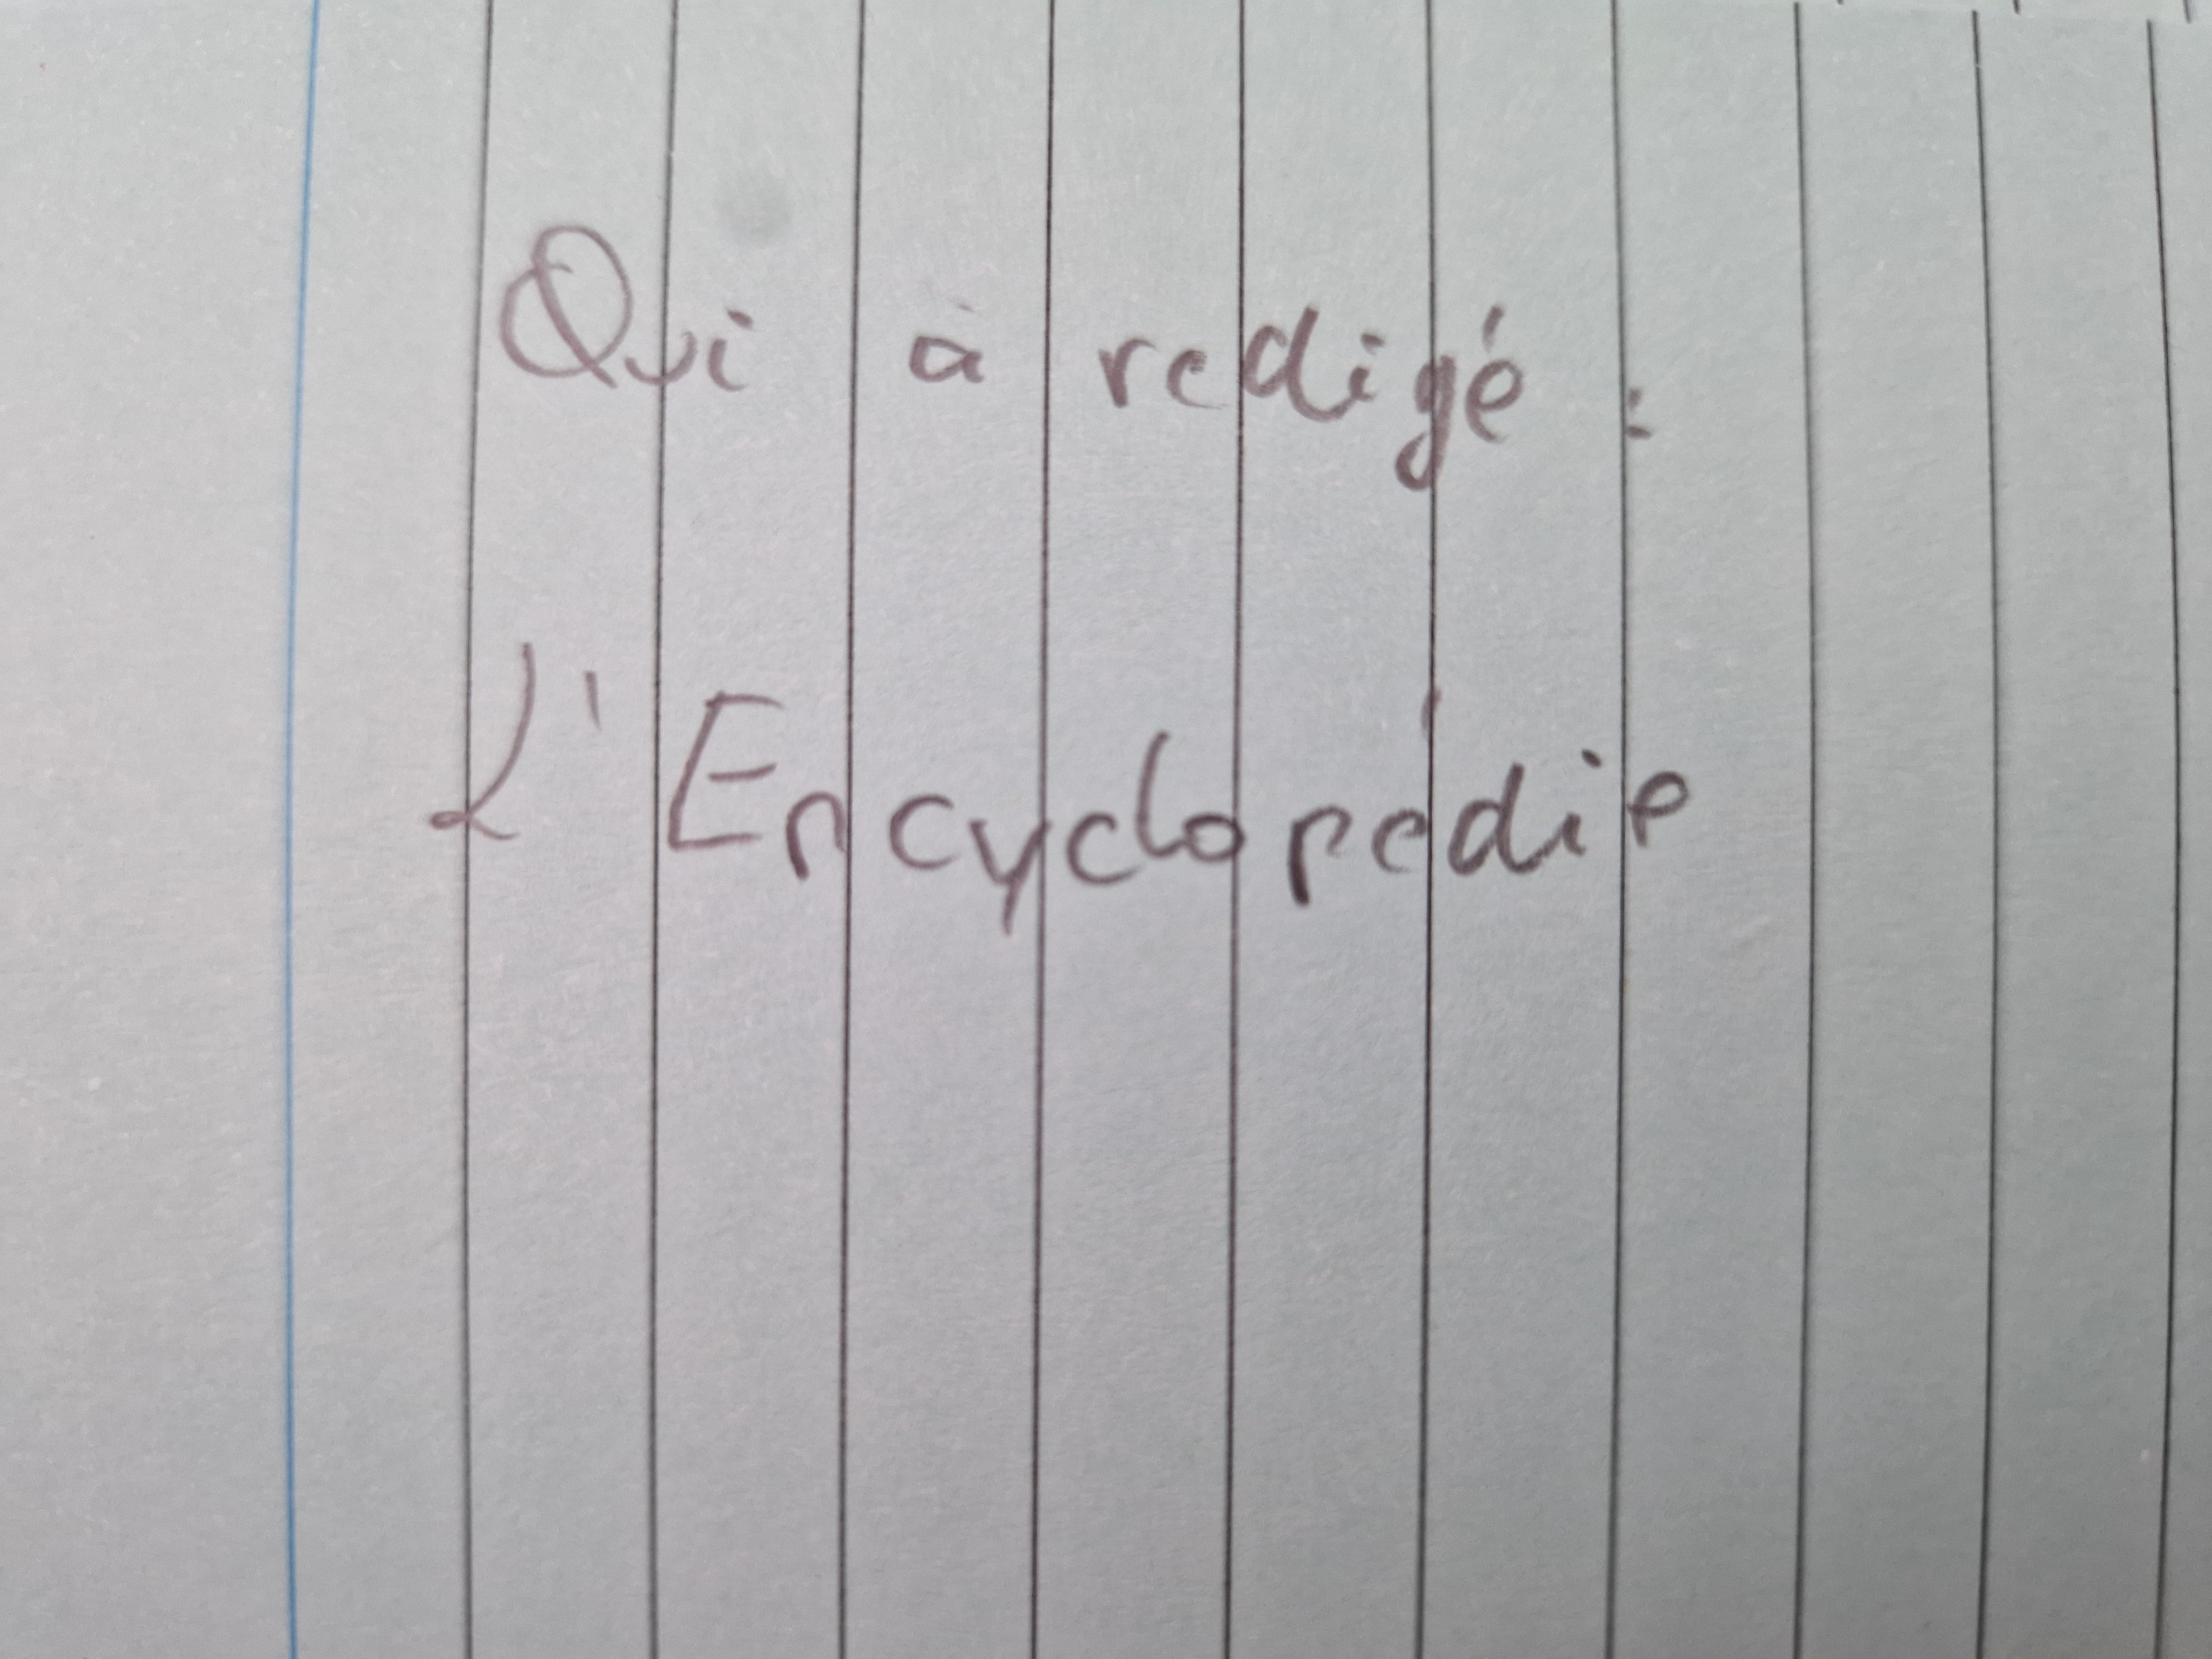 Qui à redigé :
L'Encyclopédie